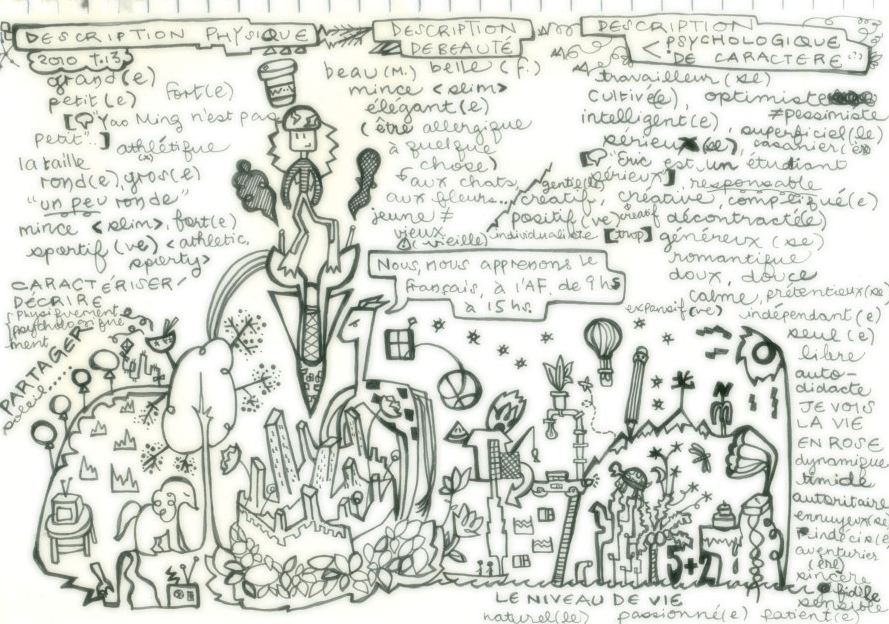 DESCRIPTION PHYSIQUE
2010 t.13
grand(e)
petit(e) fort(e)
["Yao Ming n'est pas
petit".]
athlétique
la taille
rond(e), gros(e)
"un peu ronde"
mince <slim>, fort(e)
sportif (ve) <athletic,
sporty>
CARACTÉRISER/
DÉCRIRE
physiquement
psychologique
ment
PARTAGER
DESCRIPTION
DE BEAUTÉ
beau (M.) belle (f.)
mince <slim>
élégant(e)
(être allergique
à quelque
chose)
aux chats,
aux fleurs...
jeune ≠
vieux
(vieille)
DESCRIPTION
PSYCHOLOGIQUE
DE CARACTÈRE
travailleur (se)
cultivé(e), optimiste
≠pessimiste
intelligent(e)
, superficiel(le)
sérieux(se) casanier(ère)
["Éric est un étudiant
sérieux"] responsable
gentil(le)
créatif créative, compliqué(e)
positif (ve) créatif décontracté(e)
individualiste [trop] généreux (se)
romantique
doux, douce
calme, prétentieux(se)
expansif(ve) indépendant(e)
seul (e)
libre
auto-
didacte
JE VOIS
LA VIE
EN ROSE
dynamique
timide
autoritaire
ennuyeux(se)
aventurier
(ère)
sincère
fidèle
sensible
Nous, nous apprenons le
français, à l'AF. de 9 hs
à 15 hs.
5+2
LE NIVEAU DE VIE
naturel(le) passionné(e) patient(e)